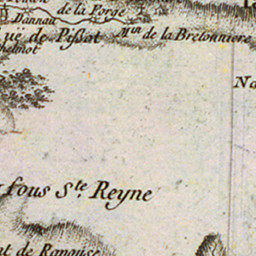 de la Forge
Dannau
uë de Pissat
Mⁱⁿ de la Bretonniere
helmot
No
sous Sᵗᵉ Reyne
nt de Ranause